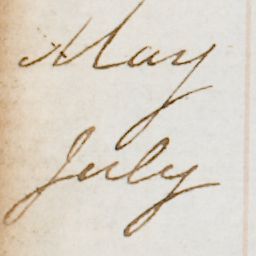 May
July